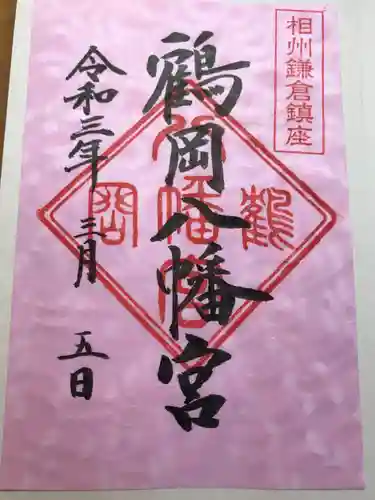 相州鎌倉鎮座
鶴岡八幡宮
鶴岡八幡宮
令和三年三月五日